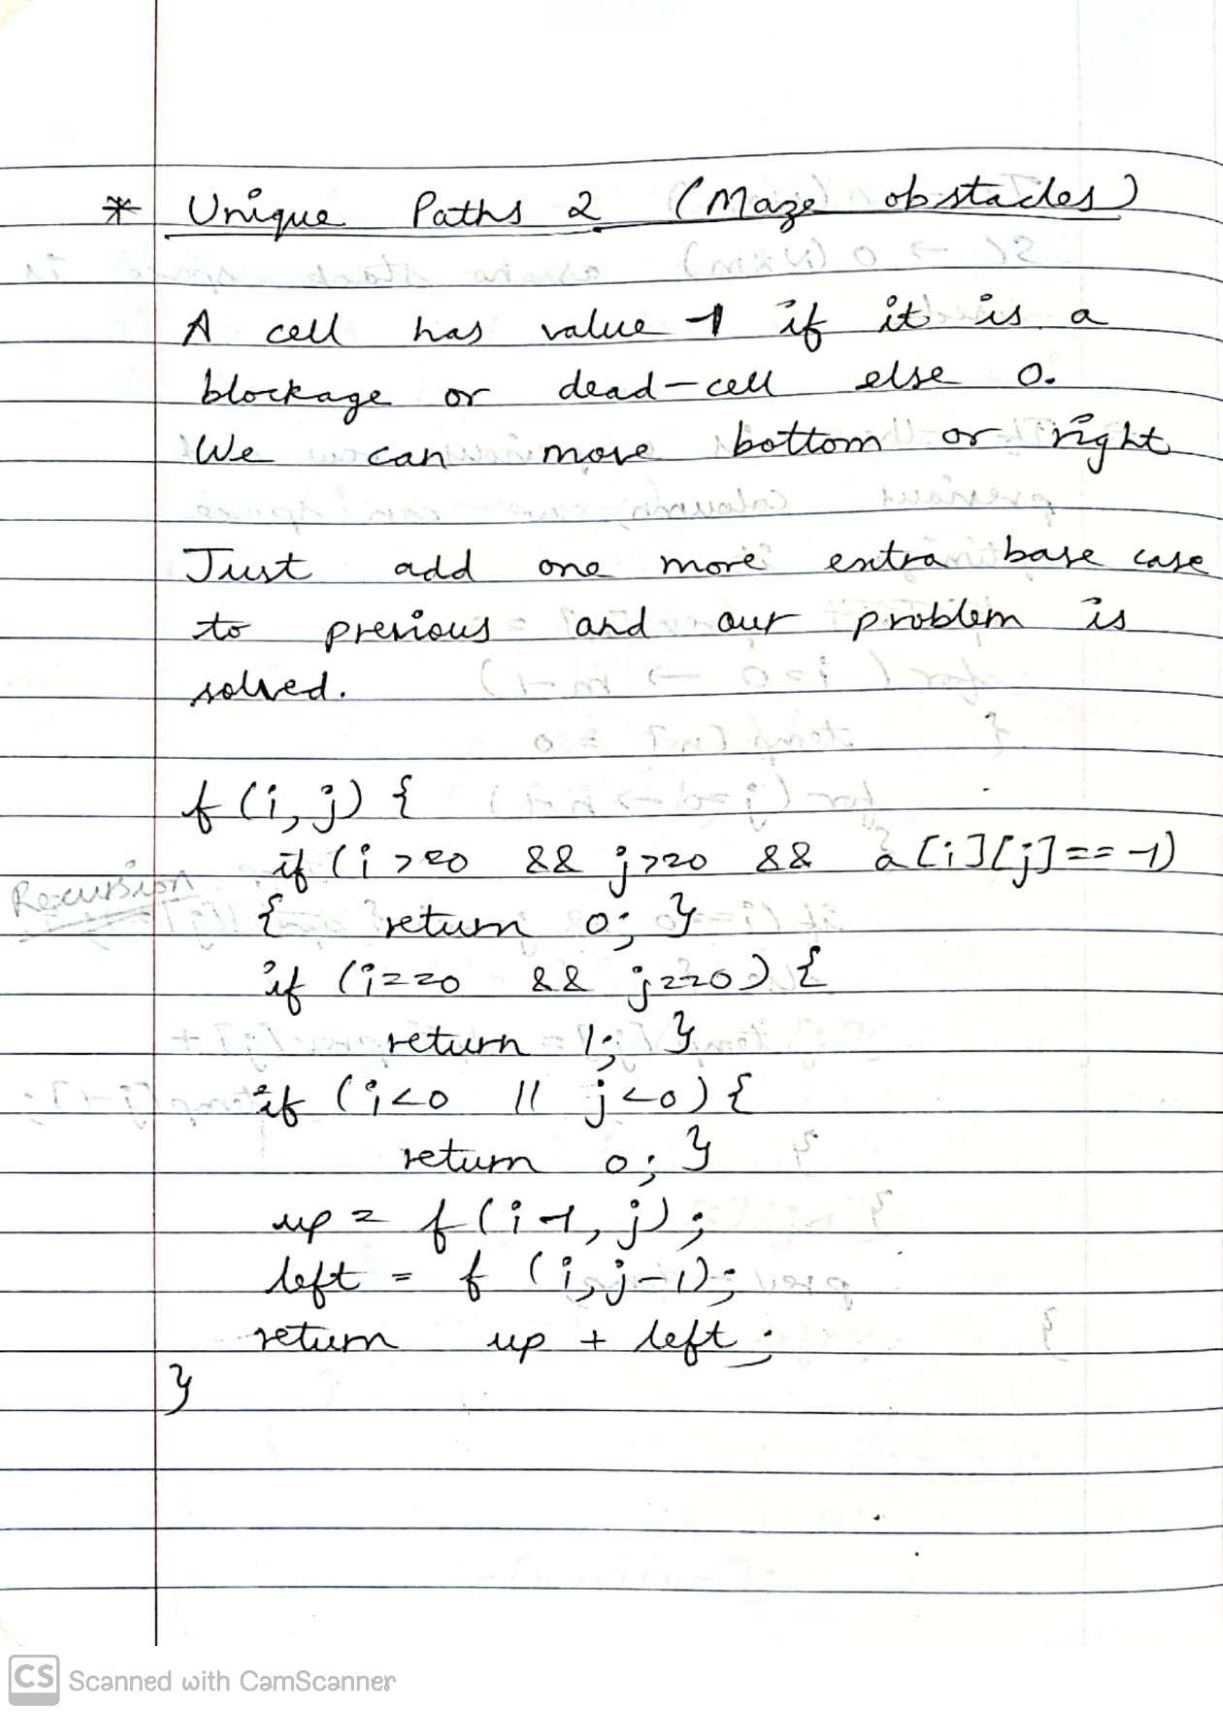 * Unique Paths 2 (Maze obstacles)
A cell has value -1 if it is a
blockage or dead-cell else 0.
We can move bottom or right
Just add one more extra base case
to previous and our problem is
solved.
f(i,j) {
if (i>=0 && j>=0 && a[i][j]==-1)
Recursion
{ return 0; }
if (i==0 && j==0) {
return 1; }
if (i<0 || j<0) {
return 0; }
up = f(i-1, j);
left = f (i,j-1);
return up + left;
}
CS Scanned with CamScanner